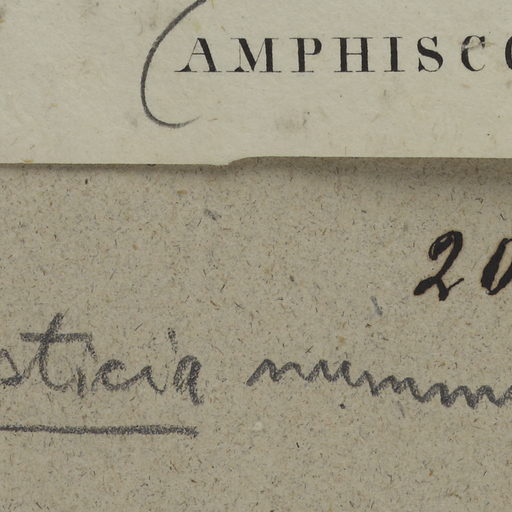 (AMPHISCO
20
sticia numm